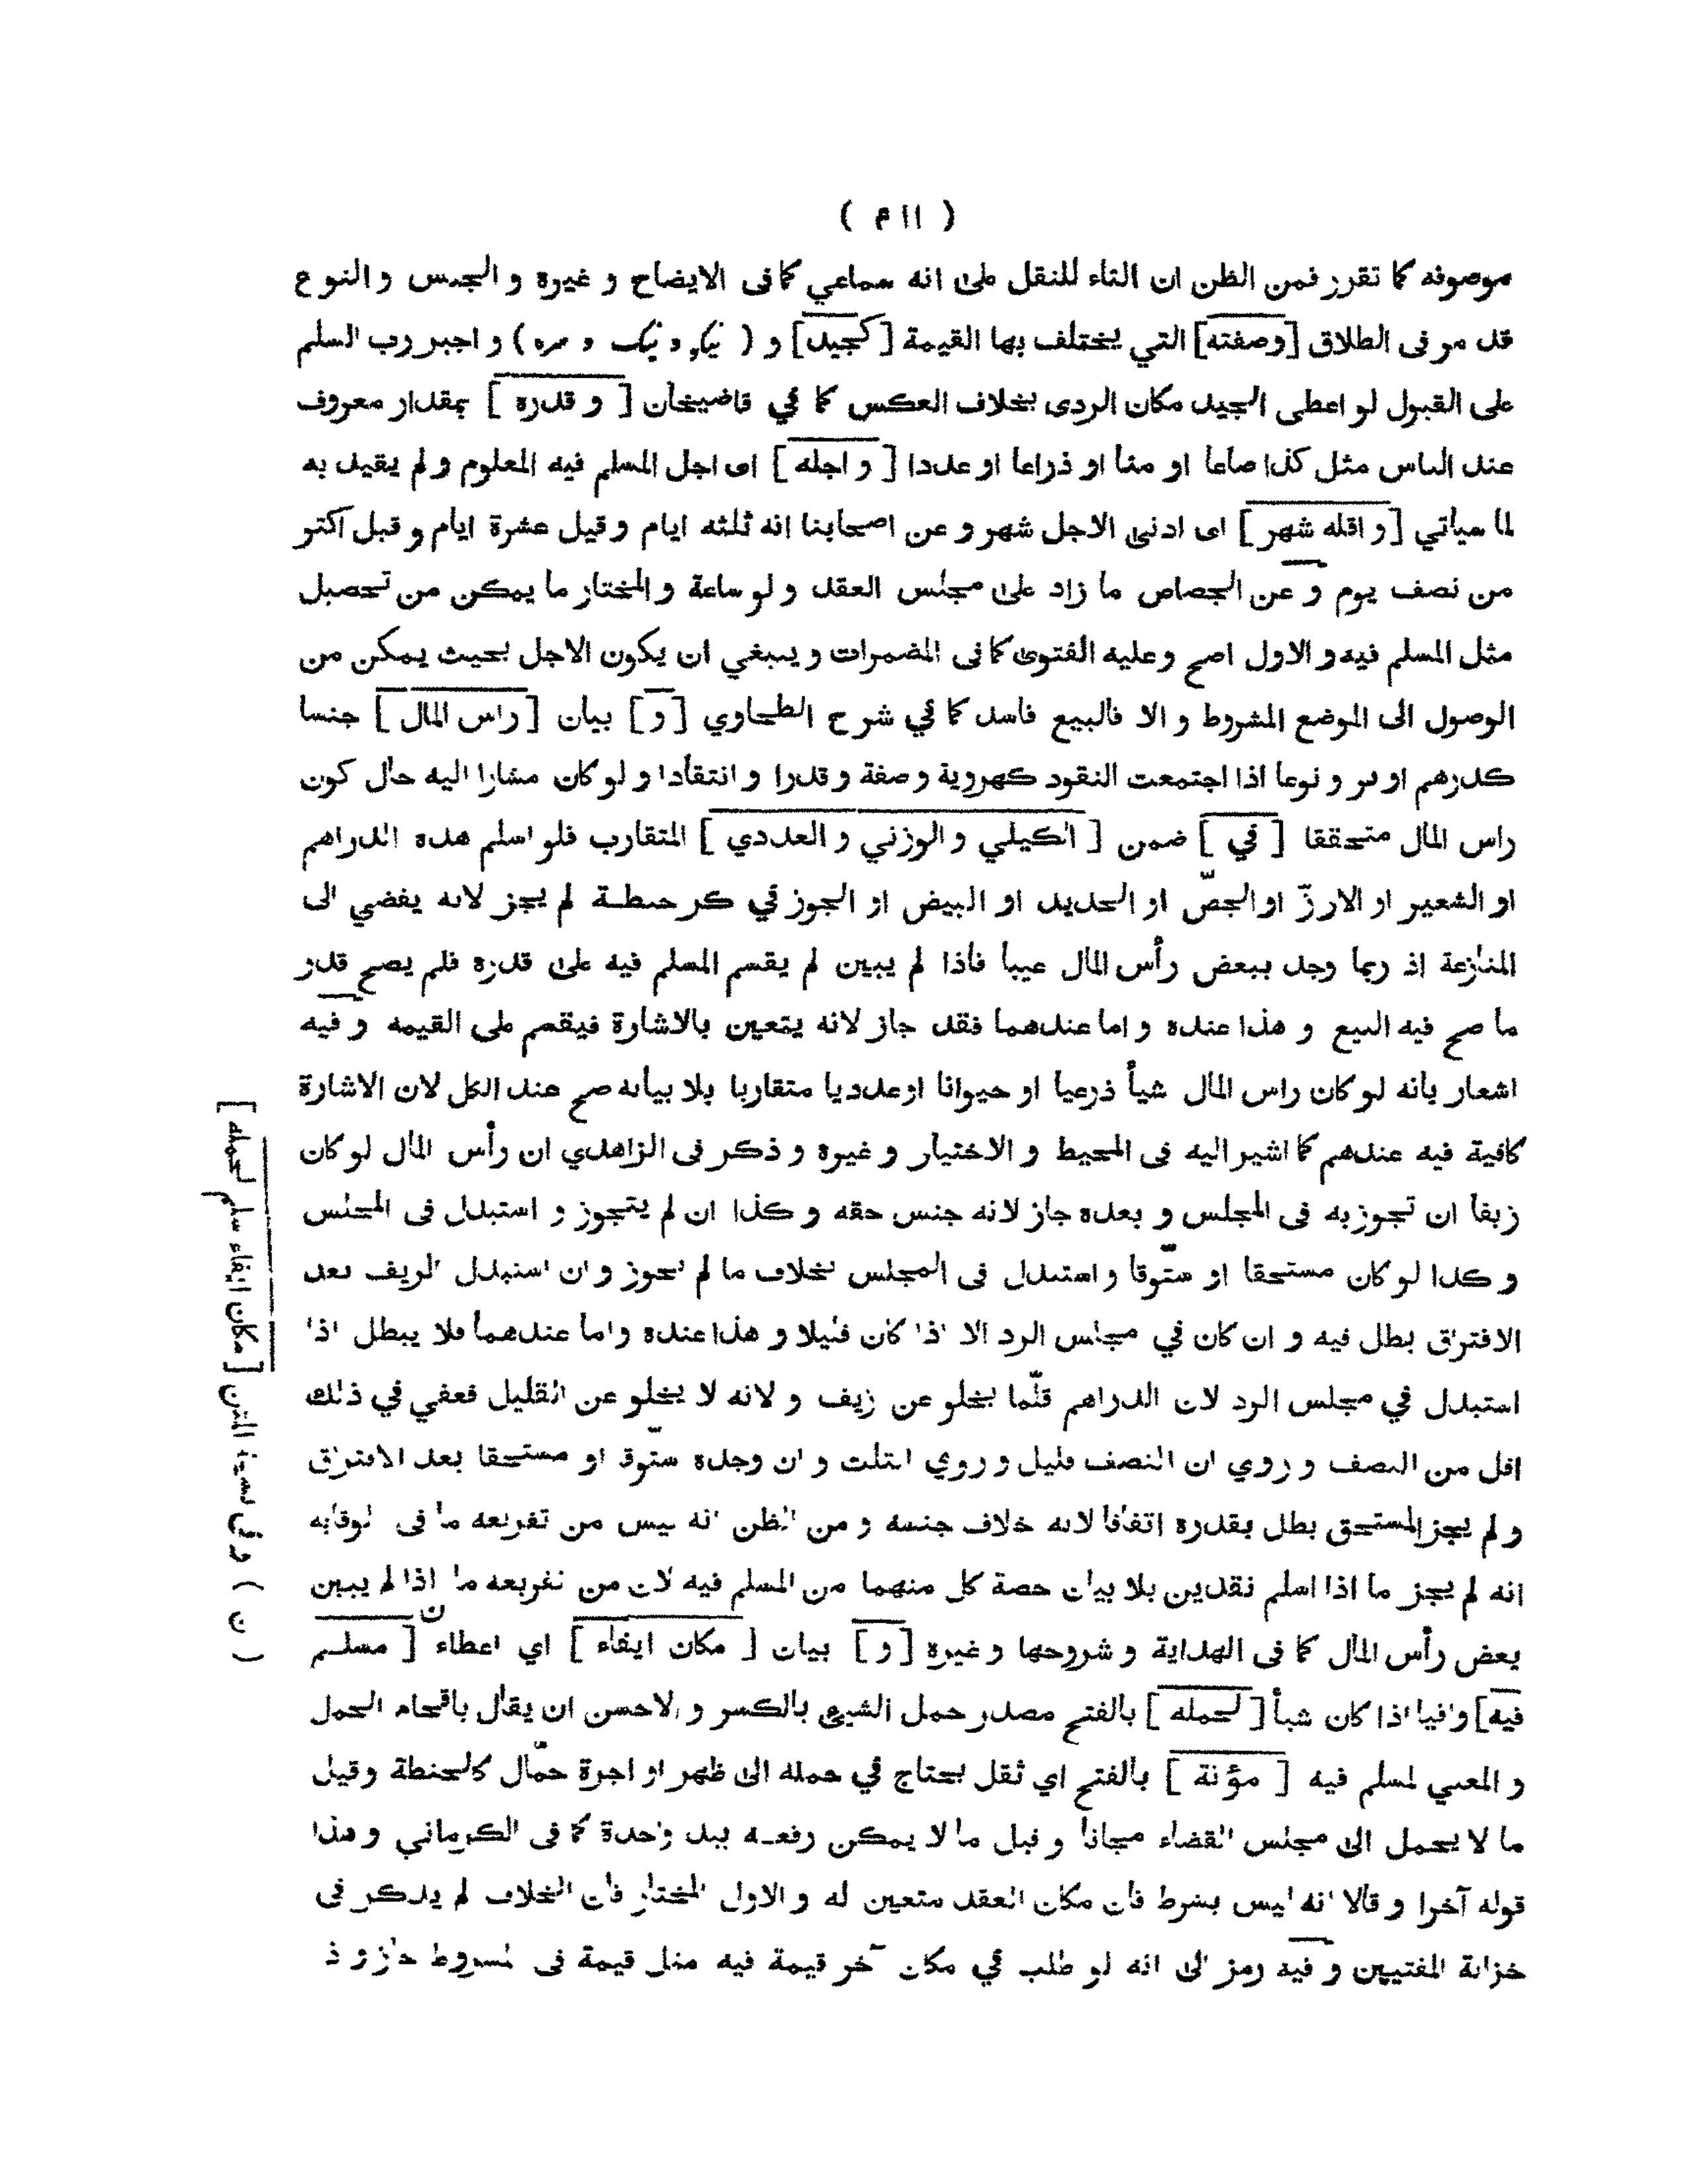 ( ۴۱۱ )
موصوفه كما تقرر فمن الظن ان التاء للنقل على انه سماعي كما فى الايضاح و غيره و الجنس و النوع
قد مر فى الطلاق [وصفته] التي يختلف بها القيمة [كجيد] و ( ) و اجبر رب السلم
على القبول لو اعطى الجيد مكان الردى بخلاف العكس كما في قاضيخان [ و قدره ] بمقدار معروف
عند الناس مثل كذا صاعا او منا او ذراعا او عددا [ و اجله ] اى اجل المسلم فيه المعلوم و لم يقيد به
لما سيأتي [و اقله شهر] اى ادنى الاجل شهر و عن اصحابنا انه ثلثه ايام و قيل عشرة ايام و قيل اكثر
من نصف يوم و عن الجصاص ما زاد على مجلس العقد و لو ساعة و المختار ما يمكن من تحصيل
مثل المسلم فيه و الاول اصح و عليه الفتوى كما فى المضمرات و ينبغي ان يكون الاجل بحيث يمكن من
الوصول الى الموضع المشروط و الا فالبيع فاسد كما في شرح الطحاوي [و] بيان [راس المال] جنسا
كدرهم او بر و نوعا اذا اجتمعت النقود كهروية و صفة و قدرا و انتقادا و لو كان مشارا اليه حال كون
راس المال متحققا [ في ] ضمن [ الكيلي و الوزني و العددي ] المتقارب فلو اسلم هذه الدراهم
او الشعير او الارزّ او الجصّ او الحديد او البيض او الجوز في كر حنطة لم يجز لانه يفضي الى
المنازعة اذ ربما وجد ببعض رأس المال عيبا فاذا لم يبين لم يقسم المسلم فيه على قدره فلم يصح قدر
ما صح فيه البيع و هذا عنده و اما عندهما فقد جاز لانه يتعين بالاشارة فيقسم على القيمه و فيه
اشعار بانه لو كان راس المال شيأ ذرعيا او حيوانا او عدديا متقاربا بلا بيانه صح عند الكل لان الاشارة
كافية فيه عندهم كما اشير اليه فى المحيط و الاختيار و غيره و ذكر فى الزاهدي ان رأس المال لو كان
زيفا ان تجوز به فى المجلس و بعده جاز لانه جنس حقه و كذا ان لم يتجوز و استبدل فى المجلس
و كذا لو كان مستحقا او ستّوقا و استبدل فى المجلس بخلاف ما لم تجوز و ان استبدل الزيف بعد
الافتراق بطل فيه و ان كان في مجلس الرد الا اذا كان قليلا و هذا عنده و اما عندهما فلا يبطل اذا
استبدل في مجلس الرد لان الدراهم قلّما يخلو عن زيف و لانه لا يخلو عن القليل فعفي في ذلك
اقل من النصف و روي ان النصف قليل و روي الثلث و ان وجده ستّوقا او مستحقا بعد الافتراق
و لم يجز المستحق بطل بقدره اتفاقا لانه خلاف جنسه و من الظن انه ليس من تفريعه ما فى الوقايه
انه لم يجز ما اذا اسلم نقدين بلا بيان حصة كل منهما من المسلم فيه لان من تفريعه ما اذا لم يبين
بعض رأس المال كما فى الهداية و شروحها و غيره [و] بيان [ مكان ايفاء ] اي اعطاء ن [ مسلم
فيه] وافيا اذا كان شيأ [لحمله] بالفتح مصدر حمل الشيئ بالكسر و الاحسن ان يقال باقحام الحمل
و المعنى لمسلم فيه [ مؤنة ] بالفتح اي ثقل يحتاج في حمله الى ظهر او اجرة حمّال كالحنطة و قيل
ما لا يحمل الى مجلس القضاء مجانا و قيل ما لا يمكن رفعه بيد واحدة كما فى الكرماني و هذا
قوله آخرا و قالا انه ليس بشرط فان مكان العقد متعين له و الاول المختار فان الخلاف لم يذكر فى
خزانة المفتيين و فيه رمز الى انه لو طلب في مكان آخر قيمة فيه مثل قيمة فى المشروط جاز و ذ
( ن ) و فى نسخة المتن [مكان ايفاء سلم لحمله]